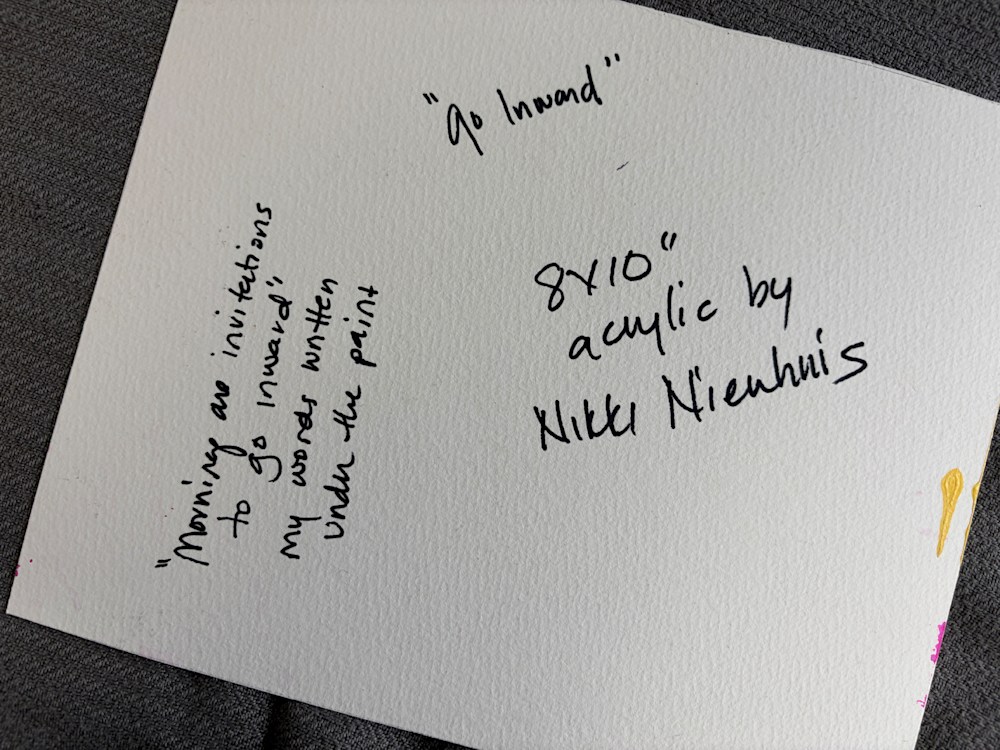 "Go Inward"
8x10"
acrylic by
Nikki Nienhuis
"Mornings are invitations
to go inward"
my words written
under the paint